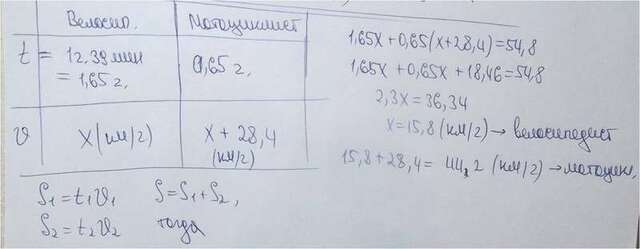 Велосип. Мотоциклист
t = 12.39 мин = 1,65 г. 0,65 г.
v x (км/г) x + 28,4 (км/г)
S₁ = t₁v₁ S = S₁ + S₂,
S₂ = t₂v₂ тогда
1,65x + 0,65(x + 28,4) = 54,8
1,65x + 0,65x + 18,46 = 54,8
2,3x = 36,34
x = 15,8 (км/г) → велосипедист
15,8 + 28,4 = 44,2 (км/г) → мотоцикл.